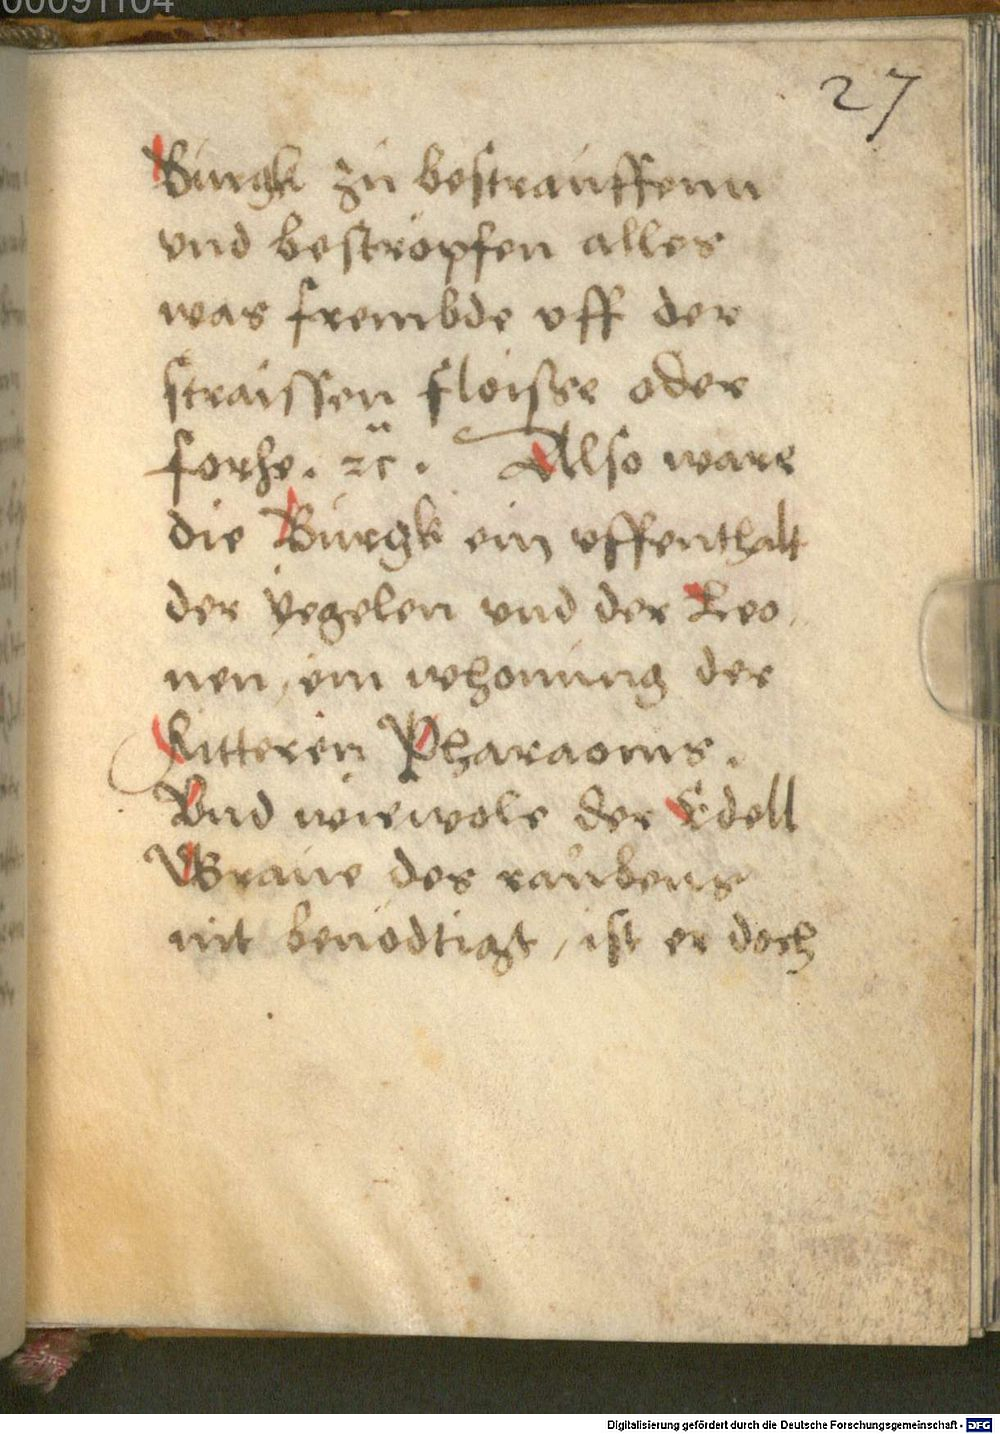 00091104
27
Burgk zu bestrauffenn
vnd bestropfen alles
was frembde vff der
straissen floisse oder
forhe. ꝛc. Also ware
die Burgk ein vffenthalt
der yegelen vnd der Leo,
nen, ein whonung der
Ritteren Pharaonis.
Vnd wiewole der Edell
Graue des raubens
nit benodtigt, ist er doch
Digitalisierung gefördert durch die Deutsche Forschungsgemeinschaft - DFG